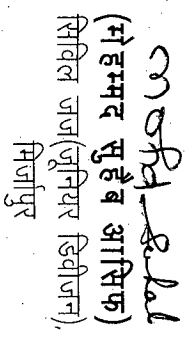 (मोहम्मद सुहैब आसिफ)
सिविल जज(जूनियर डिवीजन),
मिर्जापुर